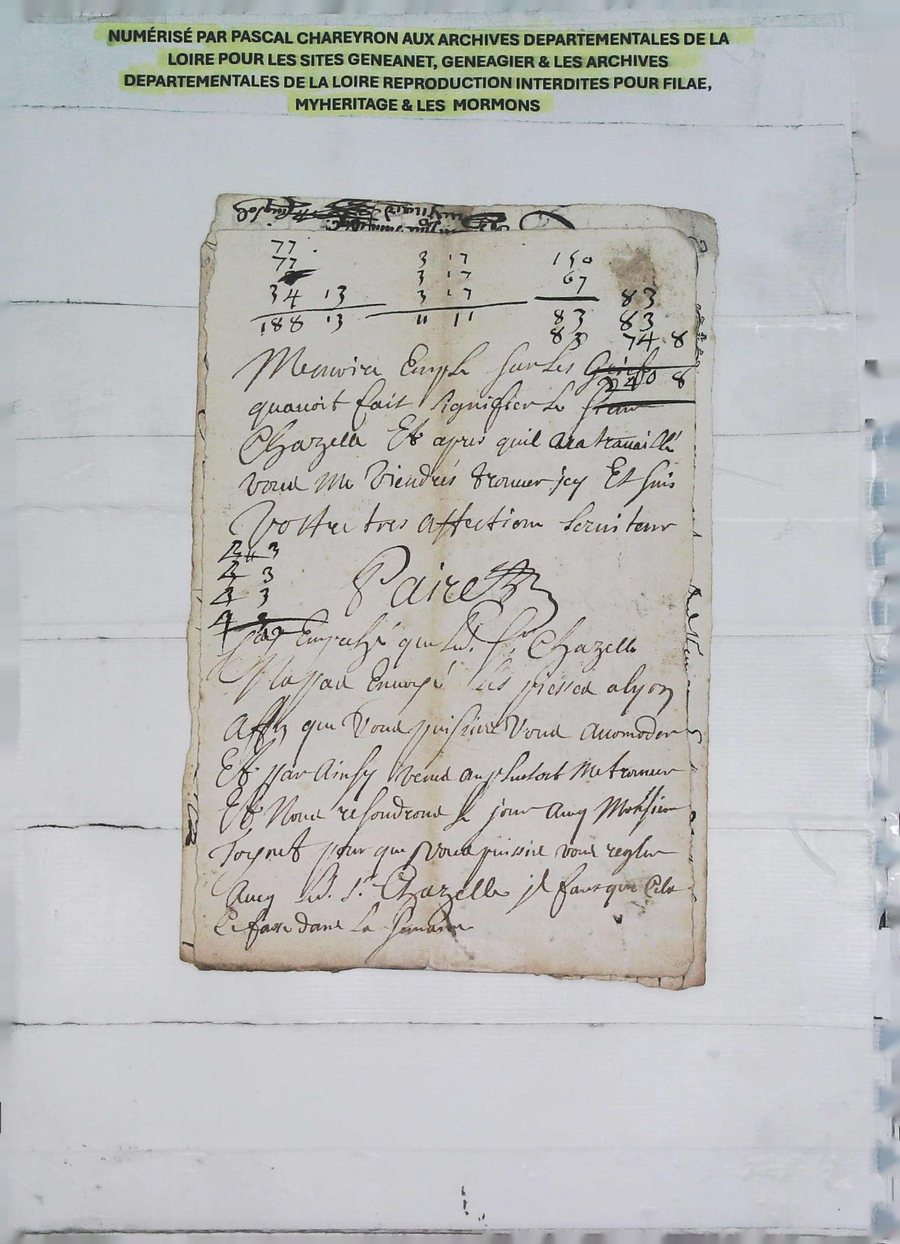 NUMÉRISÉ PAR PASCAL CHAREYRON AUX ARCHIVES DEPARTEMENTALES DE LA
LOIRE POUR LES SITES GENEANET, GENEAGIER & LES ARCHIVES
DEPARTEMENTALES DE LA LOIRE REPRODUCTION INTERDITES POUR FILAE,
MYHERITAGE & LES MORMONS
77
77 3 17 150
3 17 67
34 13 3 17 83
188 13 11 11 83 83
83 74 8
240 8
Memoire Emple sur les
quauoit fait signifier le sieur
Chazelle Et apres quil aura trauaillé
vous me viendrés trouuer jcy Et suis
Vottre tres affectionn seruiteur
3
3
3
Paire
Empeché que led. Sr. Chazelle
Naspas Enuoyé les piesses a lyon
affin que vous puissiez vous acomoder
Et par ainsy venes au plustost me trouuer
Et Nous resoudrons le jour auec Monsieur
Joynet pour que vous puissies vous regler
Auec led. Sr. Chazelle jl faut que cela
se fasse dans la semaine